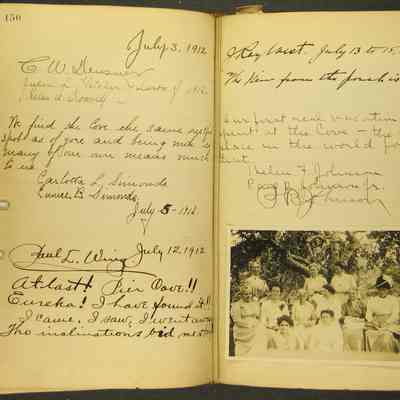 150
July 3, 1912
C. W. Deusner
1912.
We find the Cove the same restful
spot as of yore and being one is
many of our own means much
to us.
Carlotta L. Simonds
B. Simonds
July 5 - 1912.
Paul L. Wing July 12, 1912
At last! Pier Cove!!
Eureka! I have found it!!
I came, I saw, I went away
Tho inclinations bid me
Key West. July 13 to 15.
The View from the porch is
Our first real vacation
spent at the Cove - the
place in the world for
Helen F. Johnson
Johnson Jr.
Johnson